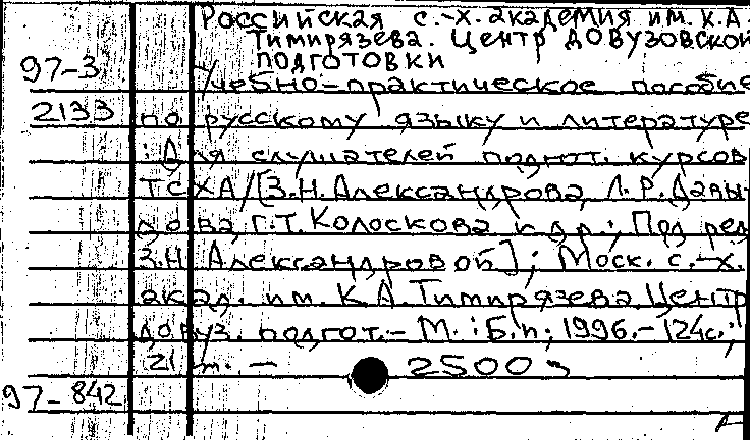 Российская с.-х. академия им. К.А.
Тимирязева. Центр довузовской
подготовки
97-3
Учебно-практическое пособие
2133 по русскому языку и литературе
: Для слушателей подгот. курсов
ТСХА/[З.Н.Александрова, Л.Р.Давы-
дова, Г.Т.Колоскова и др.; Под ред.
З.Н. Александровой]; Моск. с.-х.
акад. им. К.А.Тимирязева. Центр
довуз. подгот.- М. : Б.и., 1996.- 124с.;
21 —
2500
97-842